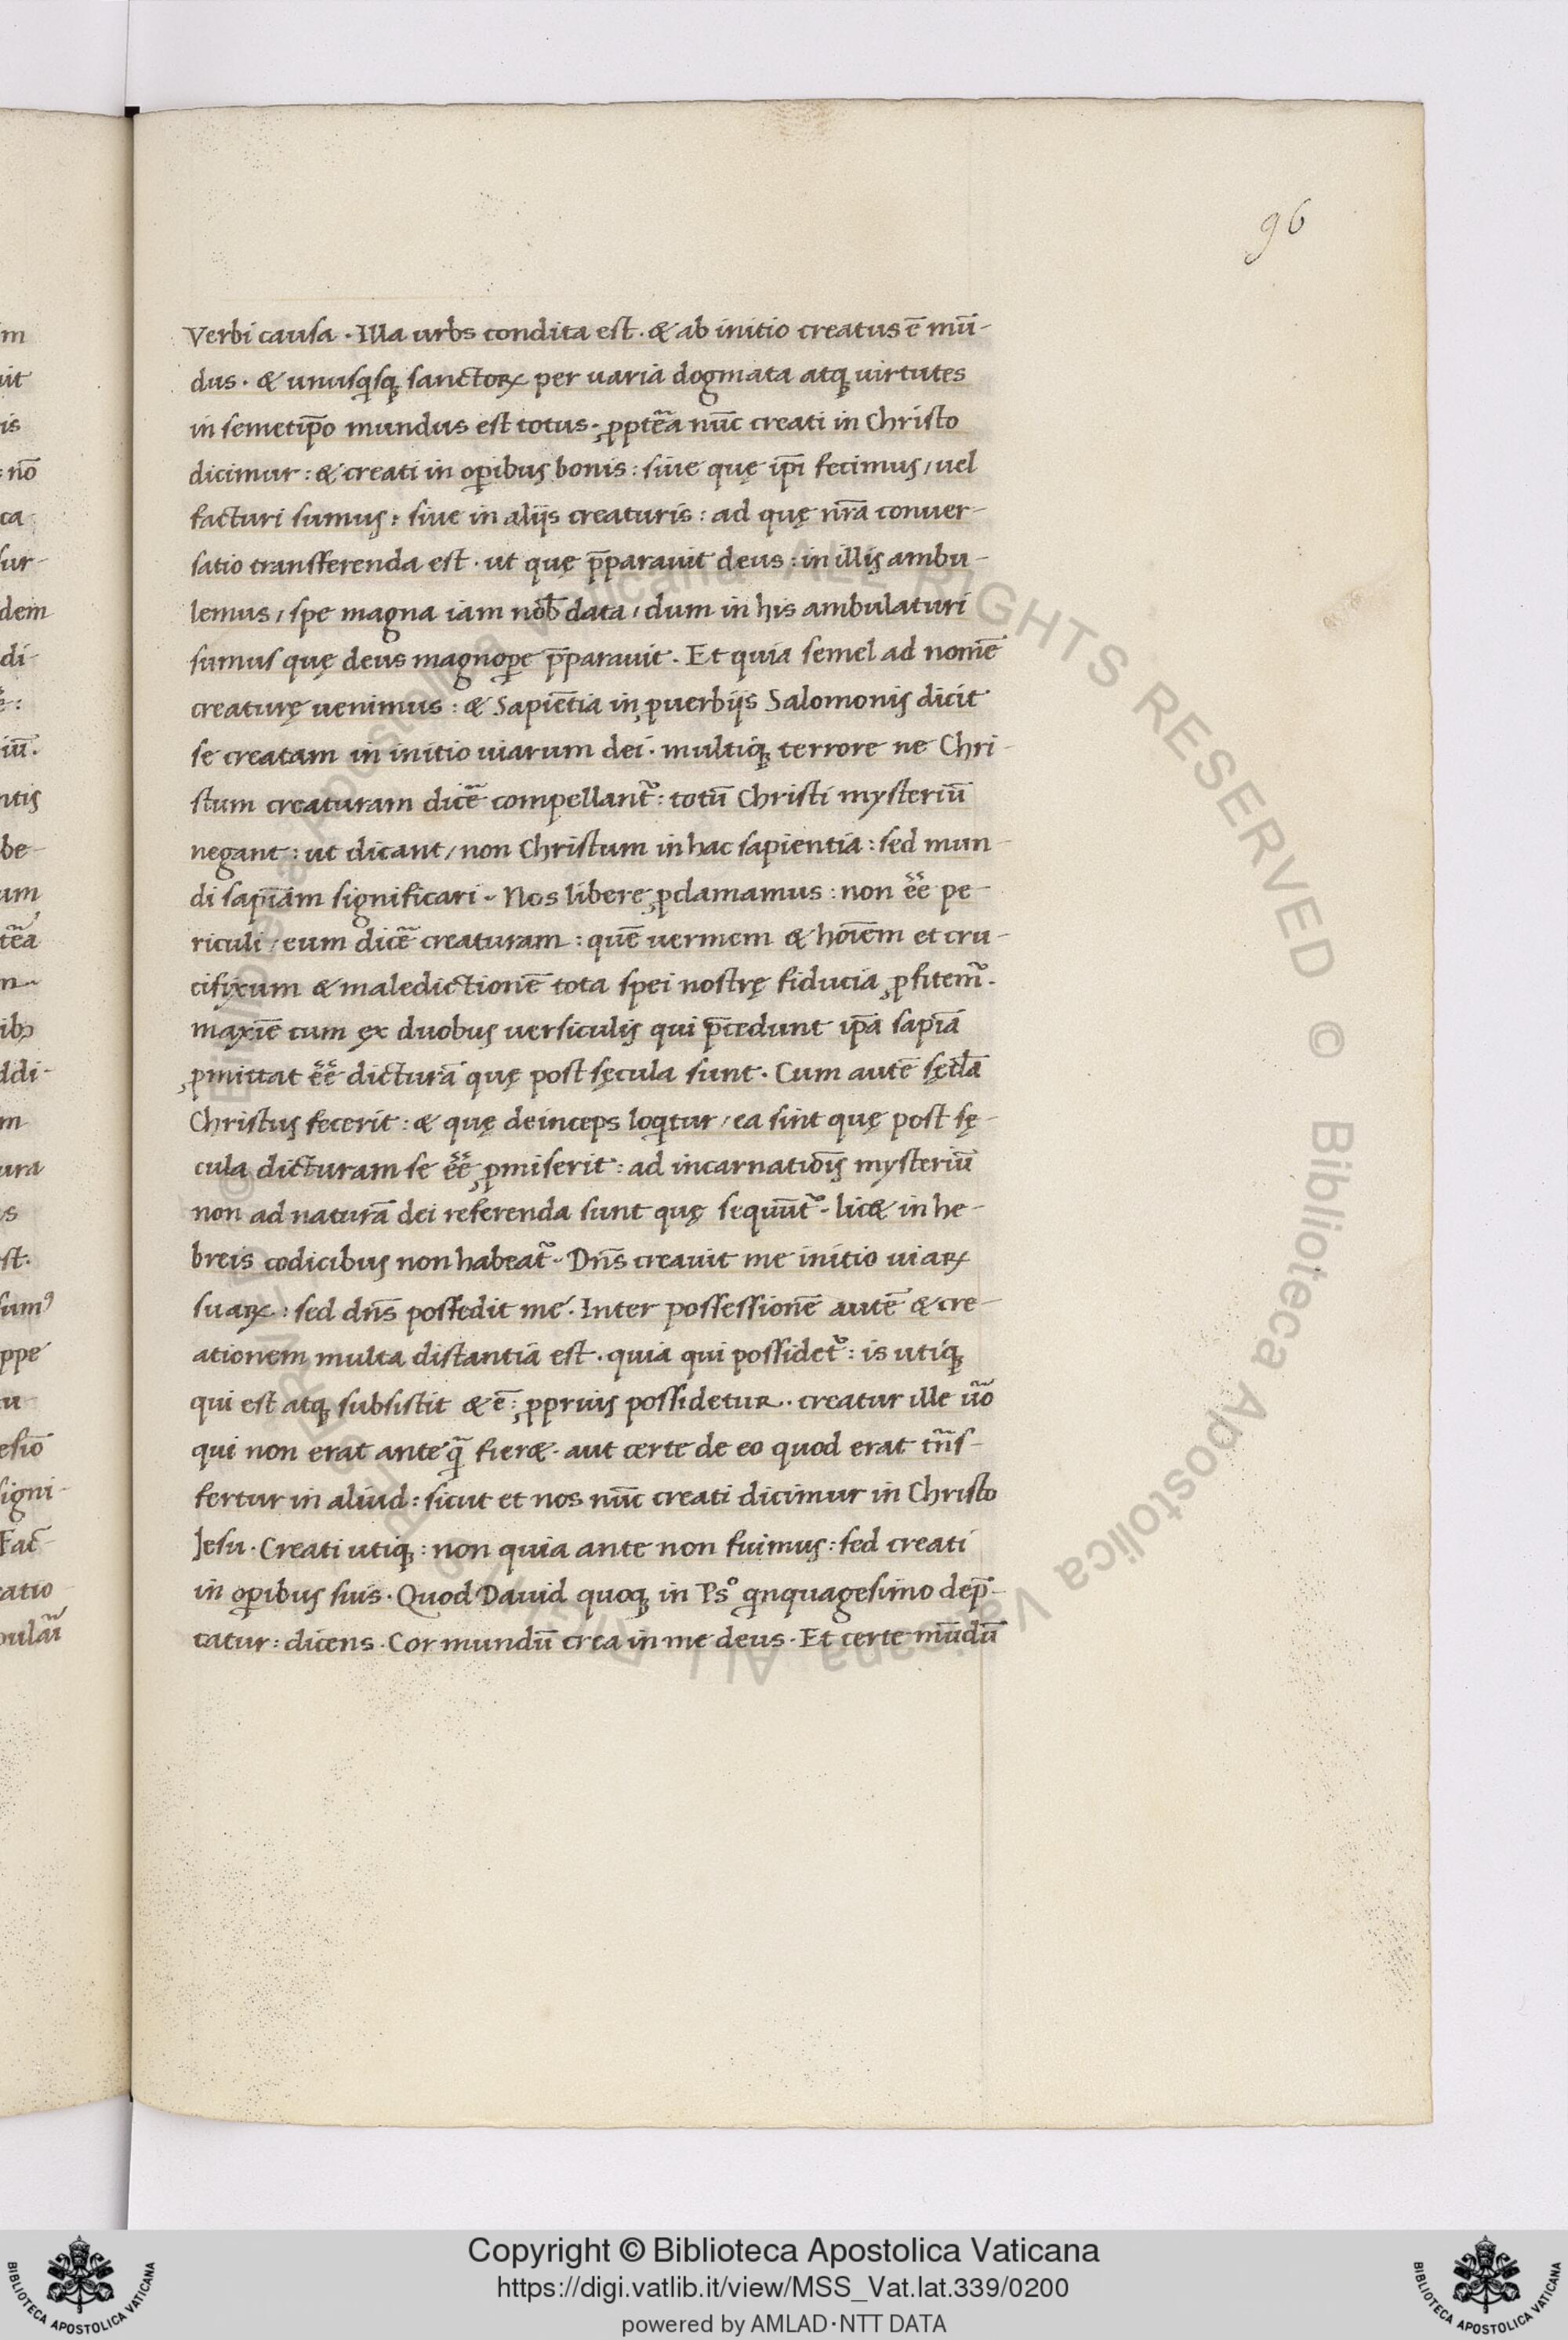 96
Verbi causa · Illa urbs condita est · & ab initio creatus ē mū-
dus · & unusqsq; sanctoꝝ per uaria dogmata atq; uirtutes
in semetip̄o mundus est totus · ꝓpteaᷓ nūc creati in Christo
dicimur : & creati in oꝑibus bonis : siue quę ip̄i fecimus / uel
facturi sumus : siue in alijs creaturis : ad quę nr̄a conuer-
satio transferenda est · ut quę p̄parauit deus : in illis ambu-
lemus / spe magna iam nob̄ data / dum in his ambulaturi
sumus quę deus magnoꝑe p̄parauit · Et quia semel ad nomē
creaturę uenimus : & Sapiētia in ꝓuerbijs Salomonis dicit
se creatam in initio uiarum dei · multiq; terrore ne Chri-
stum creaturam dicē compellant᷑ : totū Christi mysteriū
negant : ut dicant / non Christum in hac sapientia : sed mun-
di sapiām significari · Nos libere ꝓclamamus : non ēē pe-
riculi / eum dicē creaturam : quē uermem & hoīem et cru-
cifixum & maledictionē tota spei nostrę fiducia ꝓfitem᷑ ·
maxīe cum ex duobus uersiculis qui p̄cedunt ip̄a sapiā
ꝓmittat ēē dicturā quę post sęcula sunt · Cum autē sęcl̄a
Christus fecerit : & quę deinceps loqtur / ea sint quę post sę-
cula dicturam se ēē ꝓmiserit : ad incarnatiōis mysteriū
non ad naturā dei referenda sunt quę sequūt᷑ · lic& in he-
breis codicibus non habeat᷑ · Dn̄s creauit me initio uiaꝝ
suaꝝ : sed dn̄s possedit me · Inter possessionē autē & cre-
ationem multa distantia est · quia qui possidet᷑ : is utiq;
qui est atq; subsistit & ē : ꝓprius possidetur · creatur ille ūo
qui non erat anteq̄ fier& · aut certe de eo quod erat tn̄s-
fertur in aliud : sicut et nos nūc creati dicimur in Christo
Jesu · Creati utiq; : non quia ante non fuimus : sed creati
in oꝑibus suis · Quod Dauid quoq; in Ps° qnquagesimo dep̄-
catur : dicens · Cor mundū crea in me deus · Et certe mūdū
Copyright © Biblioteca Apostolica Vaticana
https://digi.vatlib.it/view/MSS_Vat.lat.339/0200
powered by AMLAD·NTT DATA